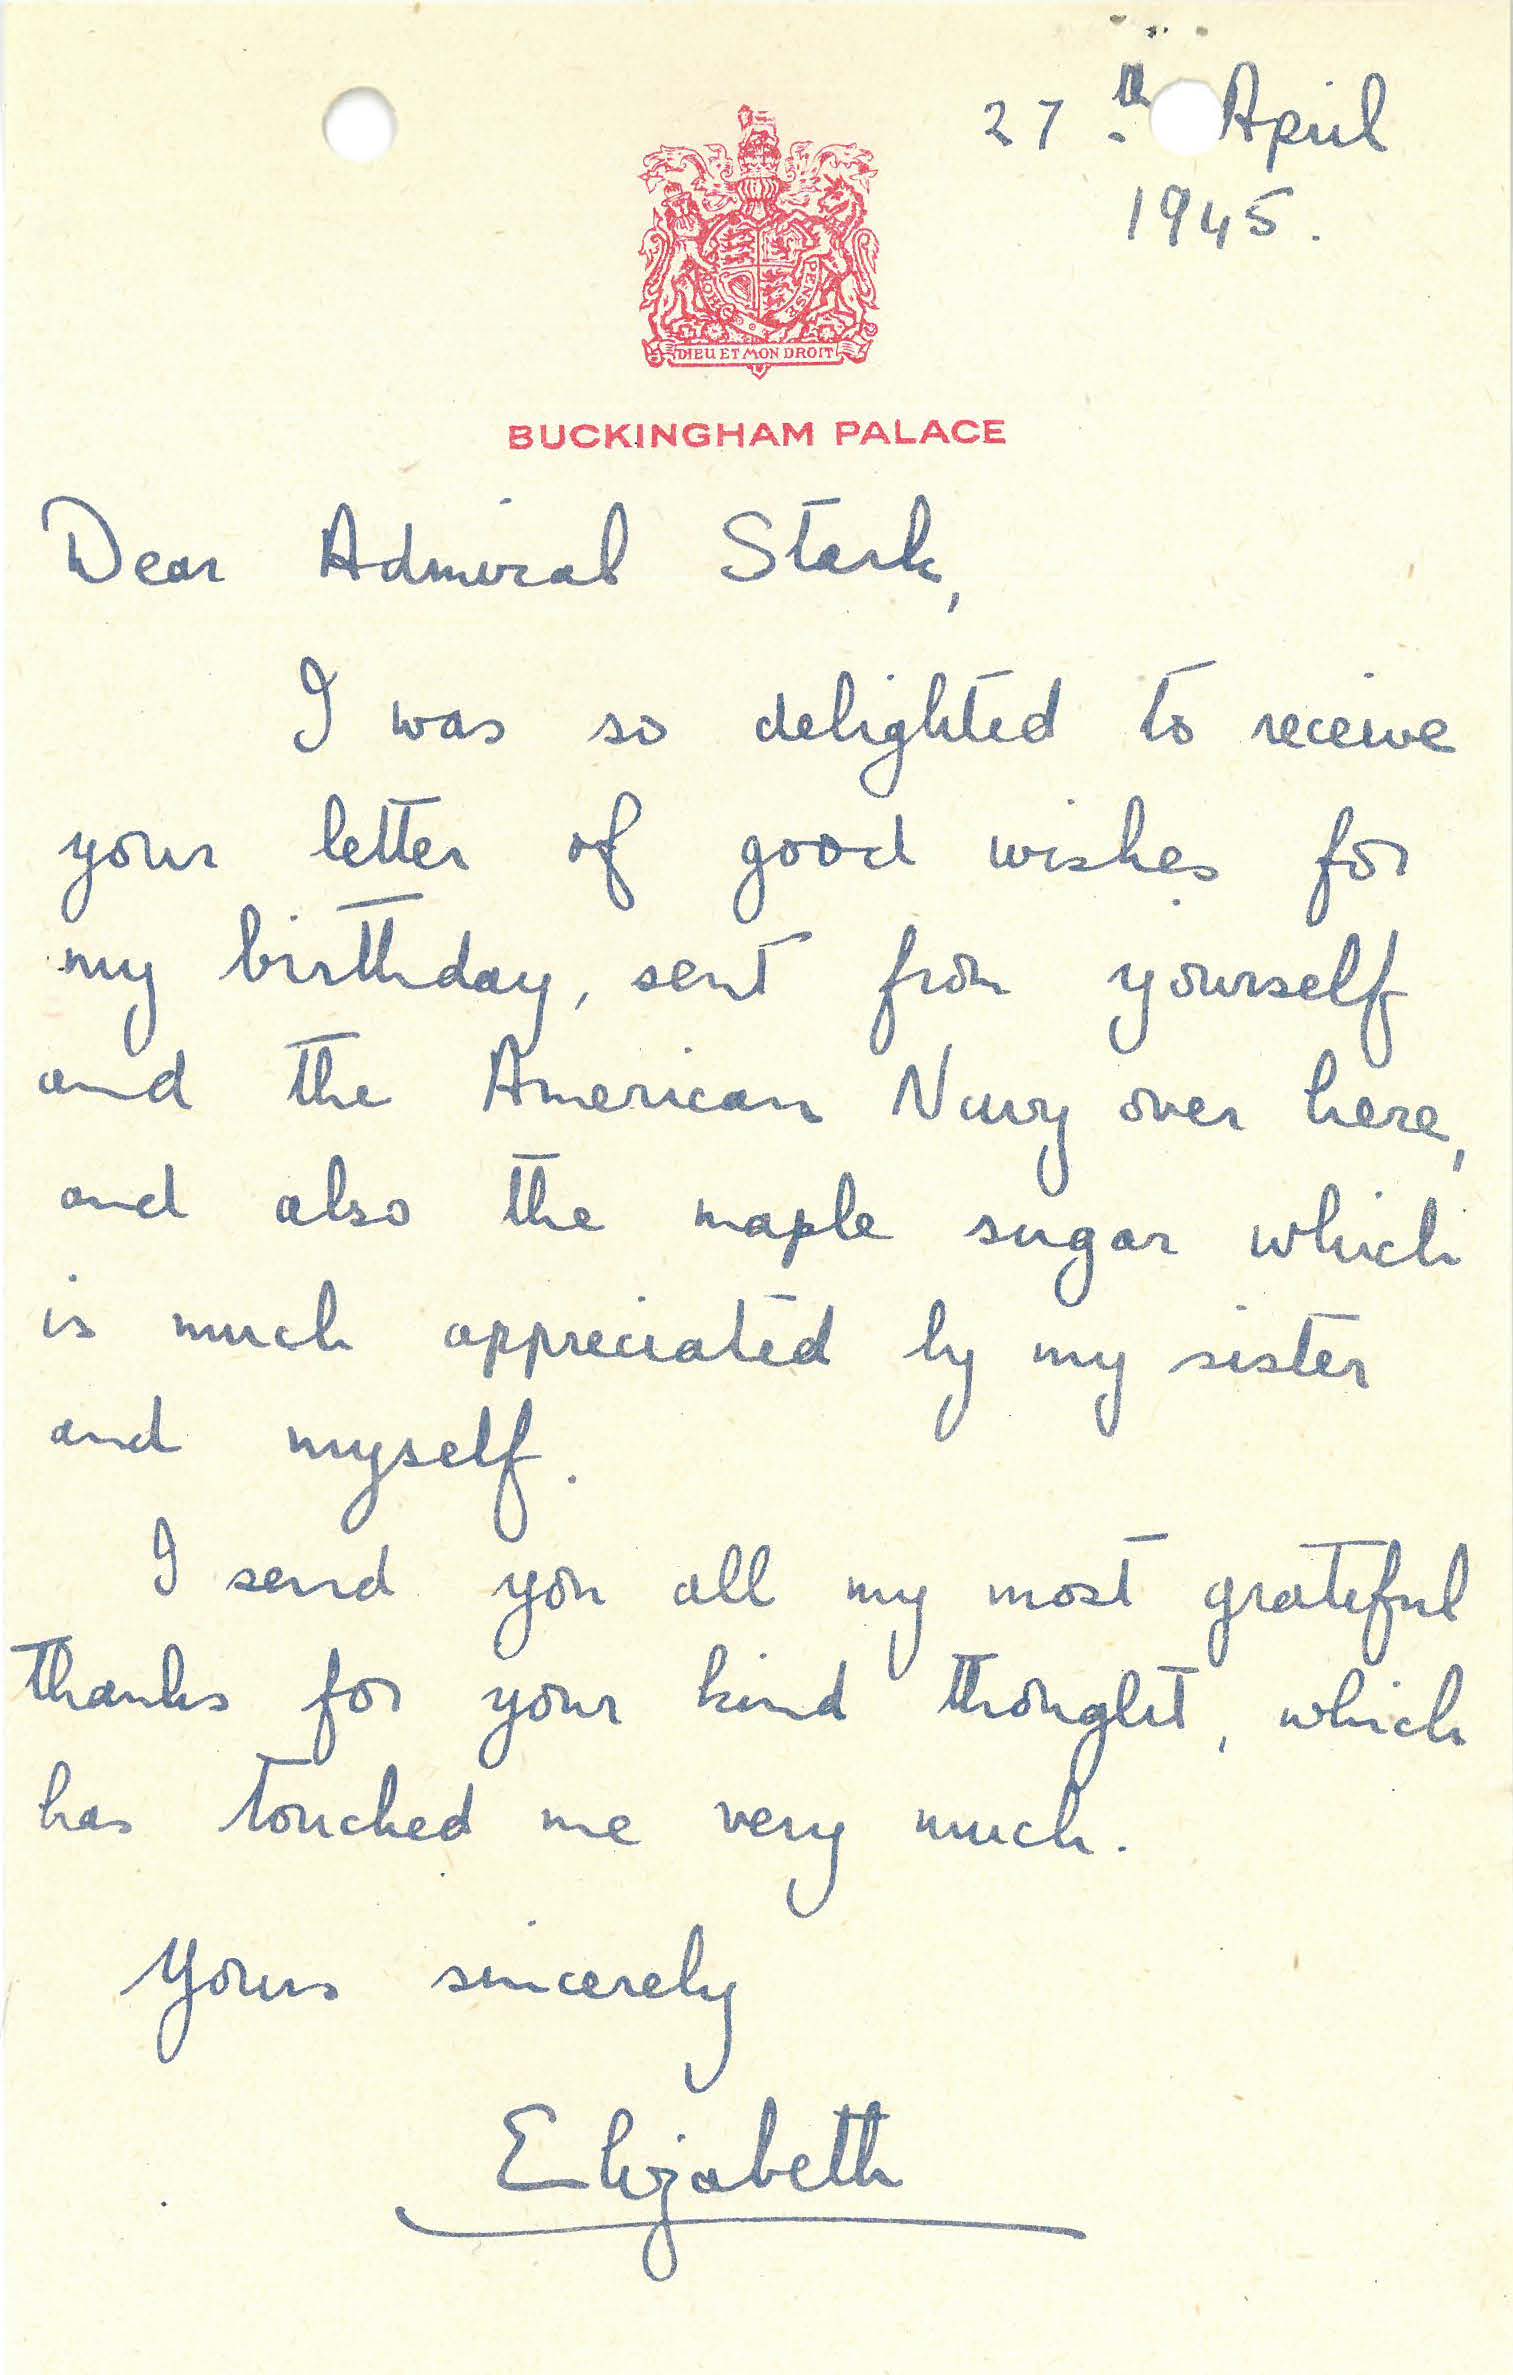 27th April
1945.
DIEU ET MON DROIT
BUCKINGHAM PALACE
Dear Admiral Stark,
I was so delighted to receive
your letter of good wishes for
my birthday, sent from yourself
and the American Navy over here,
and also the maple sugar which
is much appreciated by my sister
and myself.
I send you all my most grateful
thanks for your kind thought, which
has touched me very much.
Yours sincerely
Elizabeth